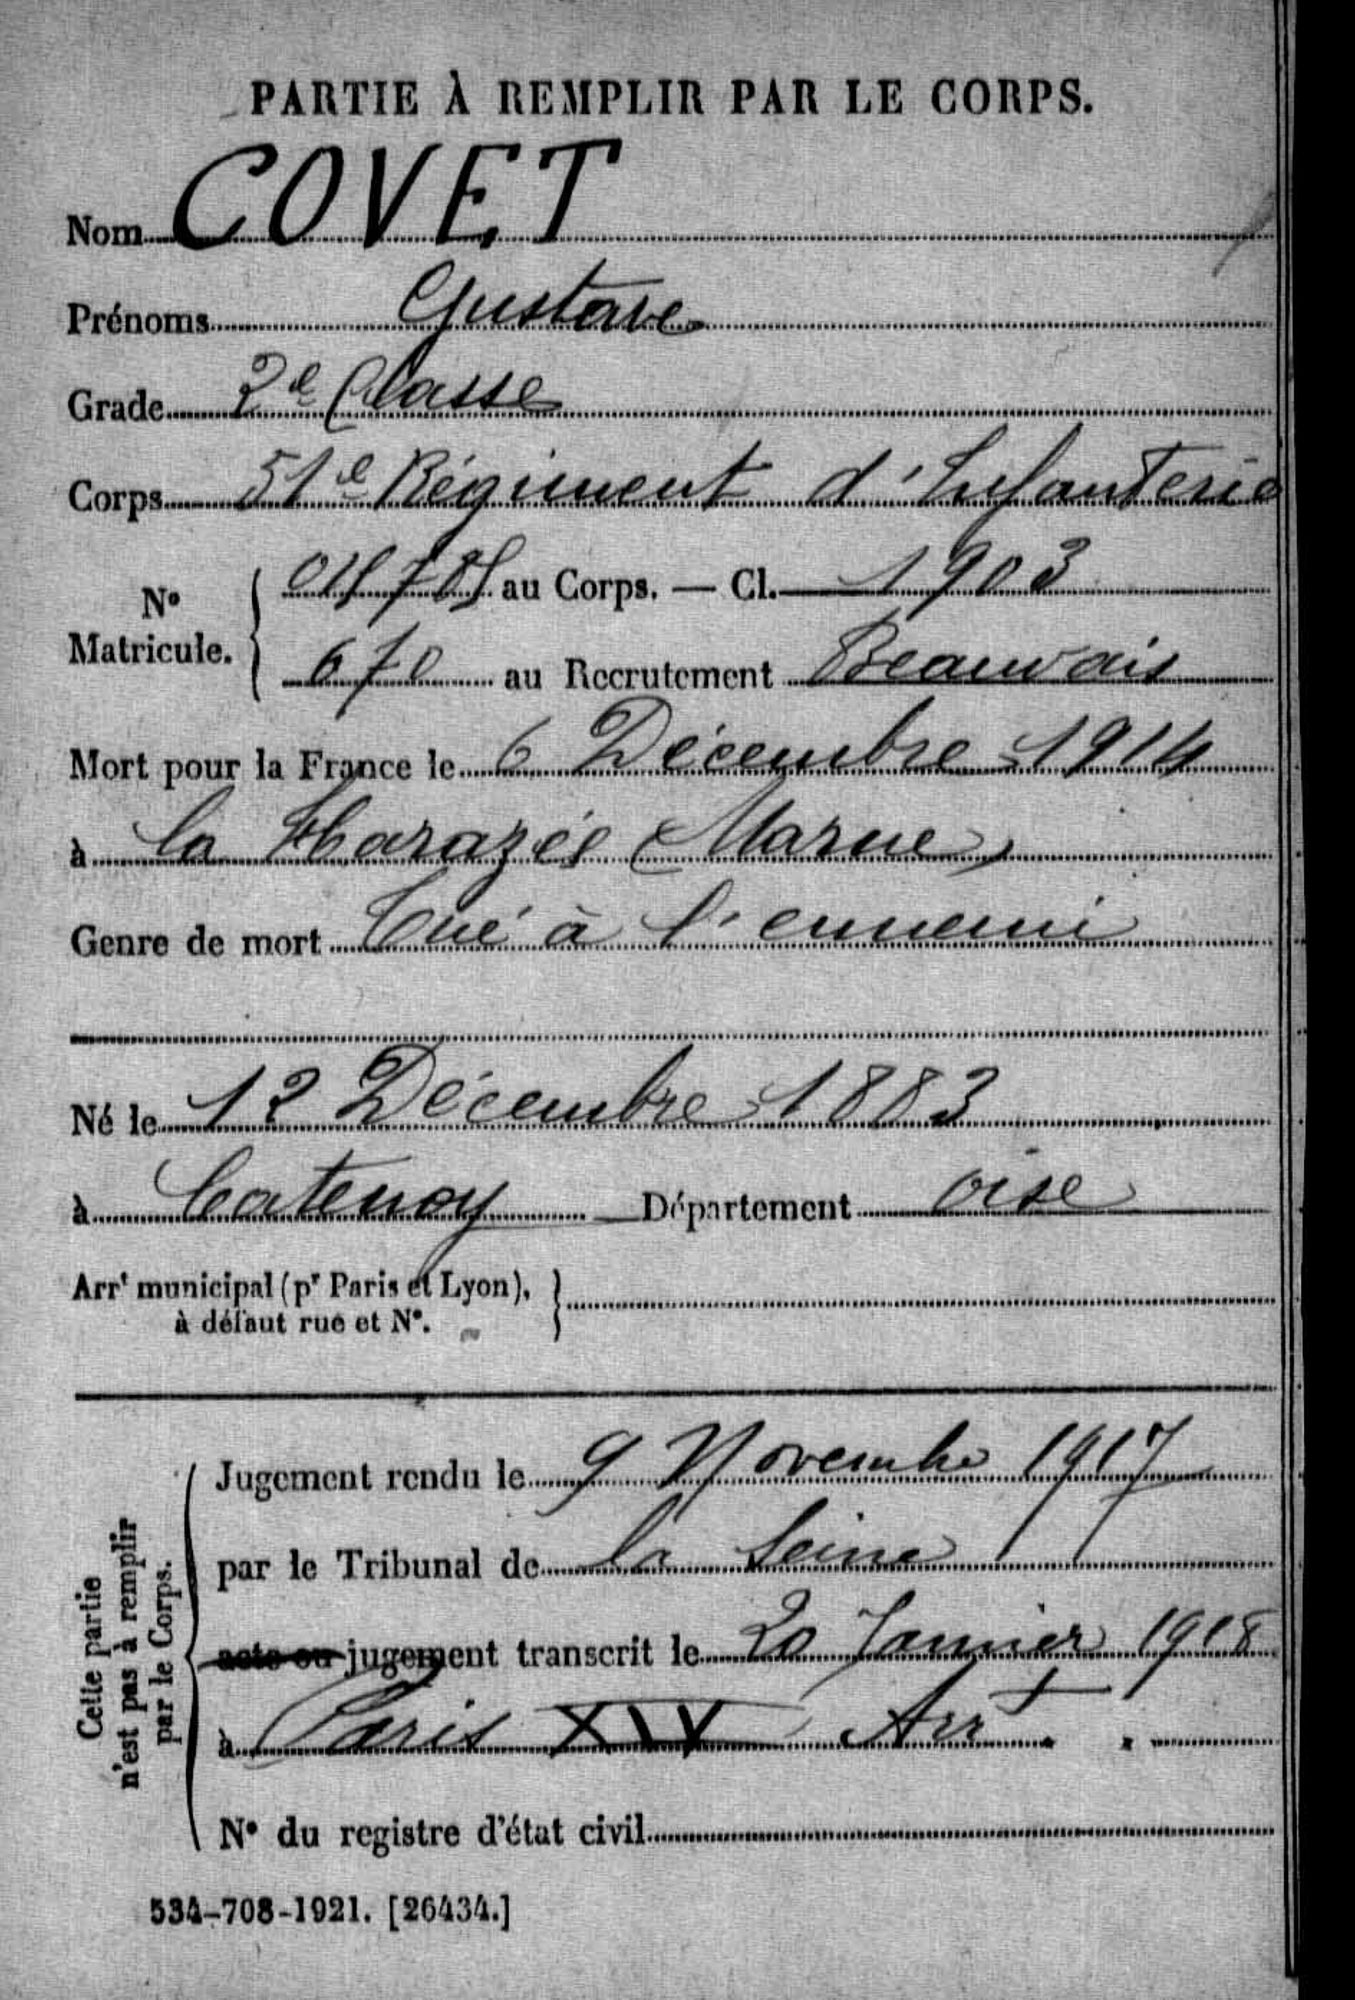 PARTIE À REMPLIR PAR LE CORPS.
Nom COVET
Prénoms Gustave
Grade 2e Classe
Corps 51e Régiment d'Infanterie
N° Matricule. au Corps. — Cl. 1903
670 au Recrutement Beauvais
Mort pour la France le 6 Décembre 1914
à la Harazée (Marne)
Genre de mort Tué à l'ennemi
Né le 12 Décembre 1883
à Catenoy Département Oise
Arrt municipal (pr Paris et Lyon),
à défaut rue et N°.
Cette partie
n'est pas à remplir
par le Corps.
Jugement rendu le 9 Novembre 1917
par le Tribunal de la Seine
acte ou jugement transcrit le 20 Janvier 1918
à Paris XIV Arrt.
N° du registre d'état civil
534-708-1921. [26434.]